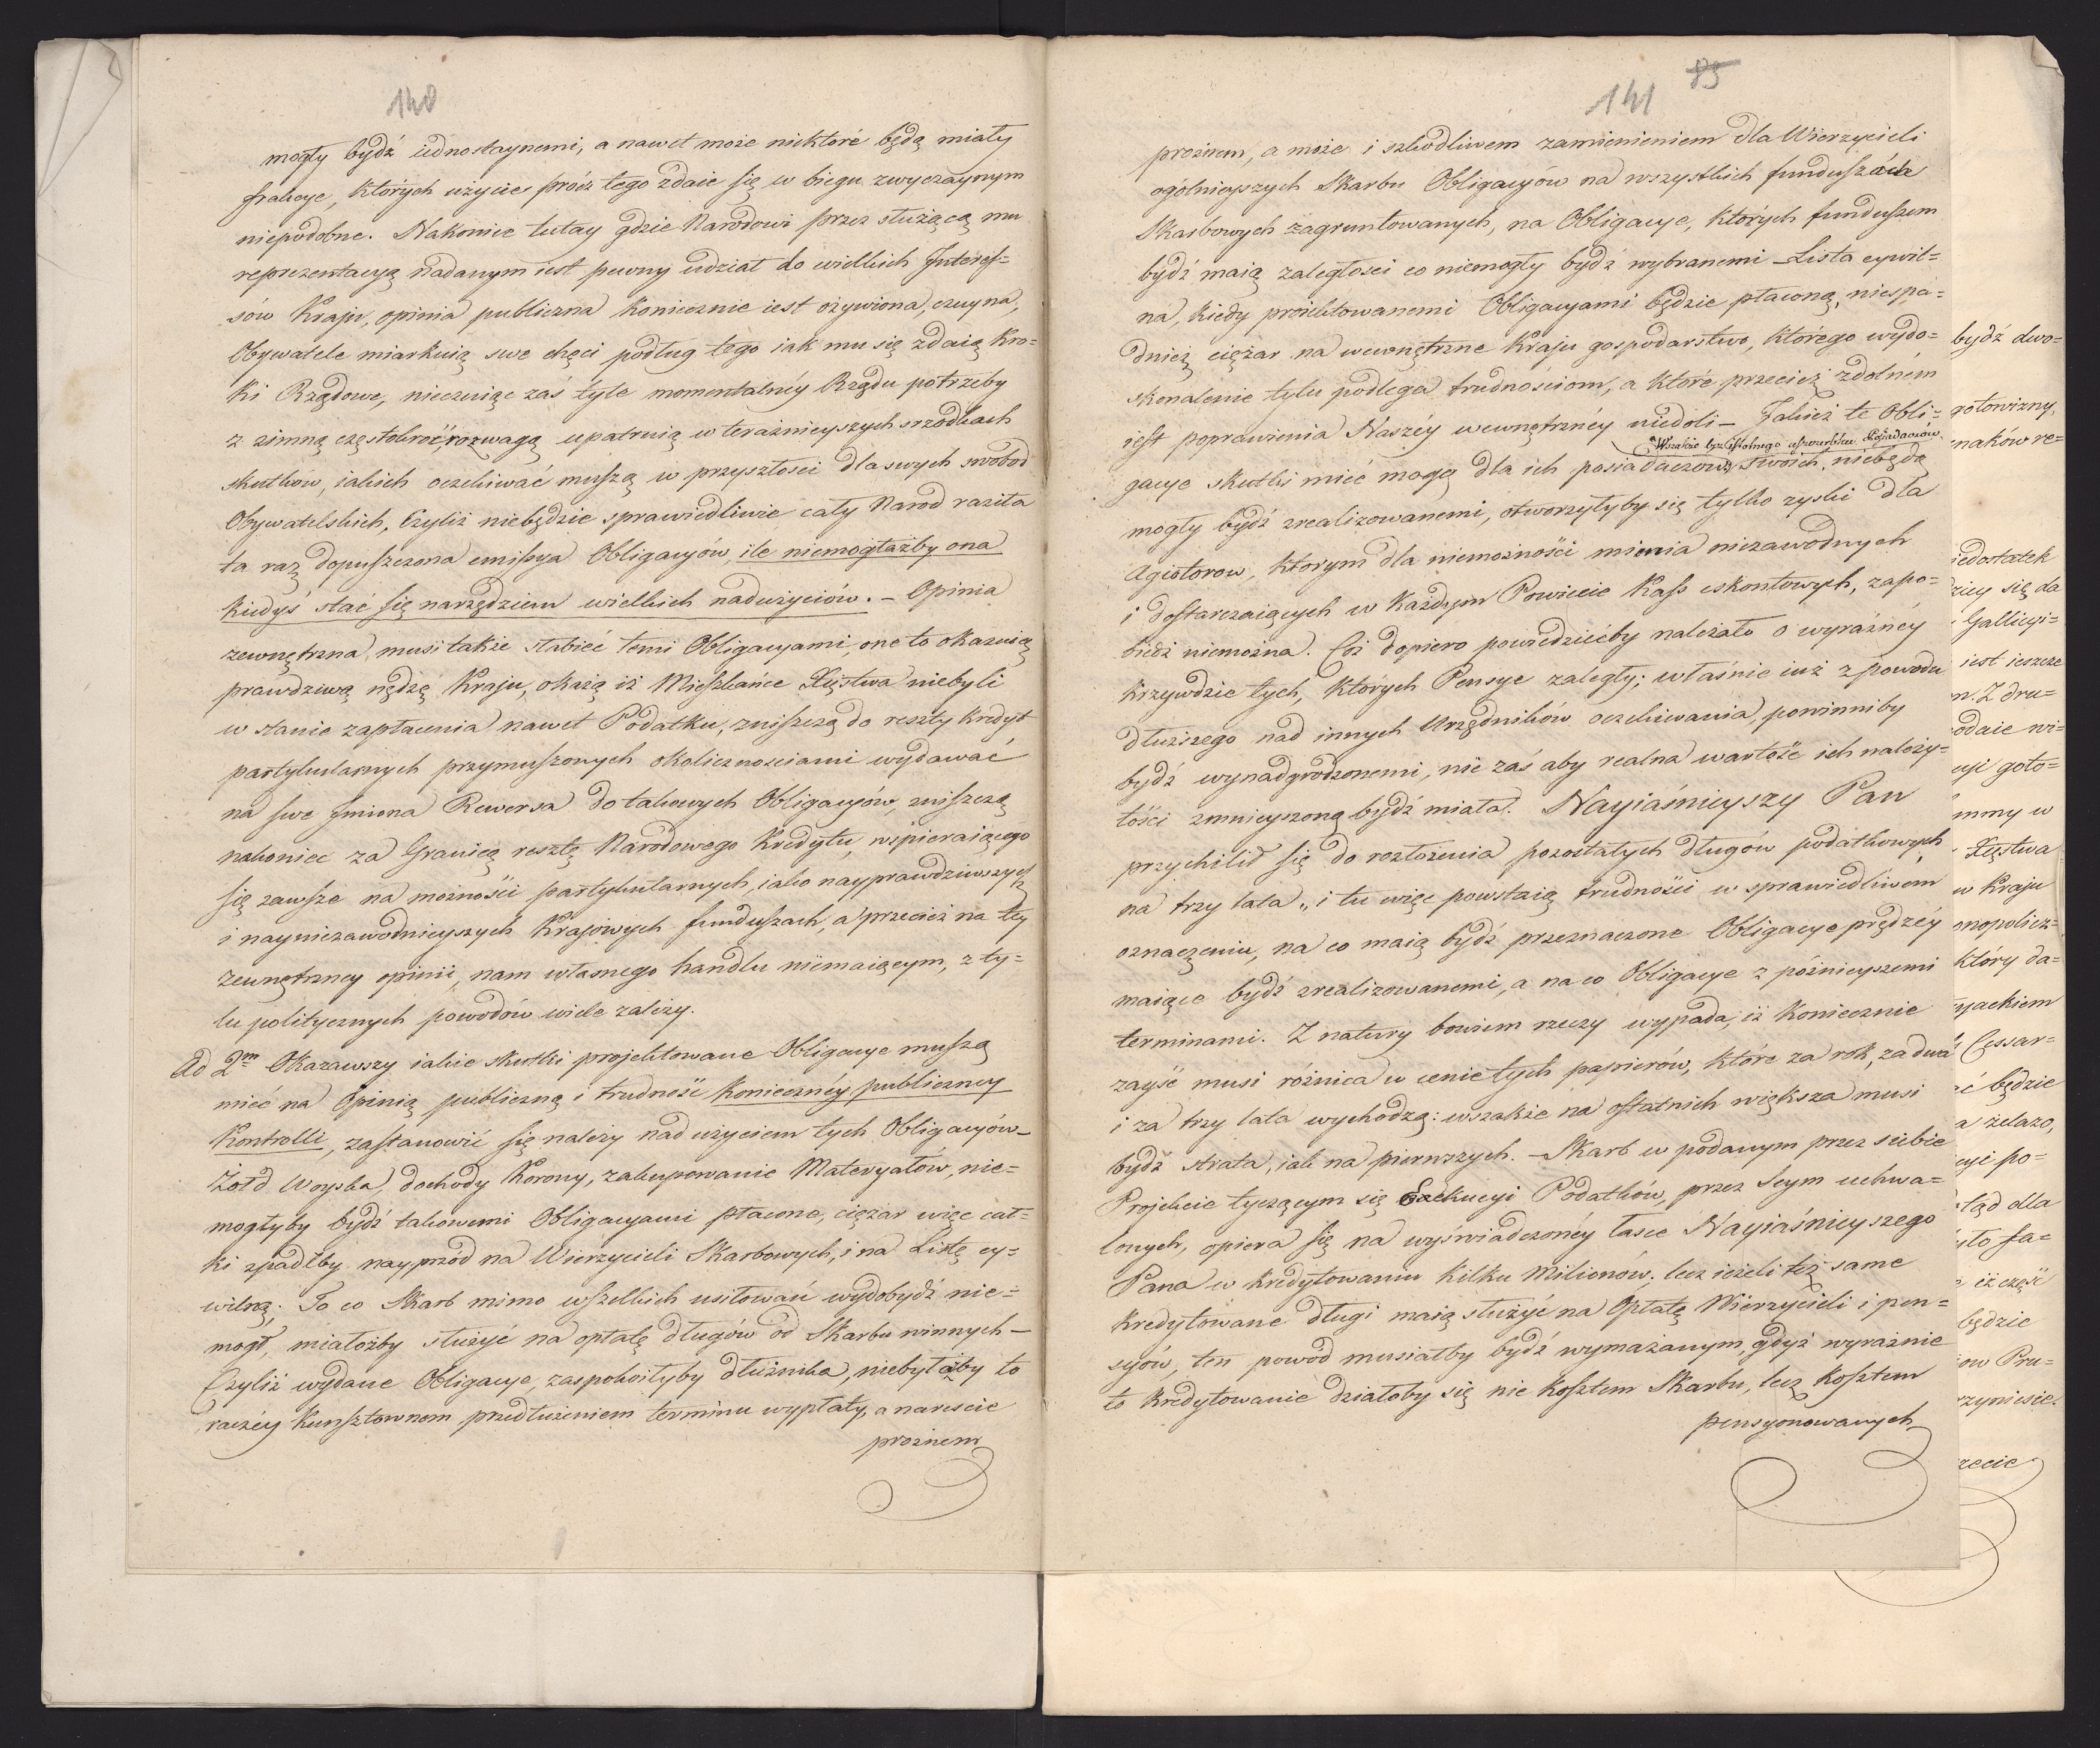 140
mogły bydź iednostaynemi, a nawet może niektóre będą miały
frakcye, których użycie prócz tego zdaie się w biegu zwyczaynym
niepodobne. Nakoniec tutay gdzie Narodowi przez służącą mu
reprezentacyą nadanym iest pewny udział do wielkich Interes=
sów Kraju, opinia publiczna koniecznie iest ożywiona, czuyna,
Obywatele miarkuią swe chęci podług tego iak mu się zdaią kro=
ki Rządowe, nieczuiąc zaś tyle momentalnéy Rządu potrzeby
z zimną częstokroć rozwagą upatruią w teraźnieyszych srzodkach
skutków, iakich oczekiwać muszą w przyszłosci dla swych swobod
Obywatelskich, Czyliż niebędzie sprawiedliwie cały Narod raziła
ta raz dopuszczona emissya Obligacyów, ile niemogłażby ona
kiedyś stać się narzędziem wielkich nadużyciów. – Opinia
zewnętrzna musi także słabieć temi Obligacyami, one to okazuią
prawdziwą nędzę Kraju, okażą iż Mieszkańce Xięstwa niebyli
w stanie zapłacenia nawet Podatku, zniszczą do reszty kredyt
partykularnych przymuszonych okolicznosciami wydawać
na swe Imiona Rewersa do takowych Obligacyów, zniszczą
nakoniec za Granicą resztę Narodowego Kredytu, wspieraiącego
się zawsze na możności partykularnych, iako nayprawdziwszych
i nayniezawodnieyszych Kraiowych funduszach, a przecież na tey
zewnętrzney opinii, nam własnego handlu niemaiącym, z ty=
lu politycznych powodów wiele zależy.
Ad 2m Okazawszy iakie skutki projektowane Obligacye muszą
mieć na Opinią publiczną i trudność konieczney publiczney
Kontrolli, zastanowić się należy nad użyciem tych Obligacyów –
Żołd Woyska, dochody Korony, zakupowanie Materyałów, nie=
mogłyby bydź takowemi Obligacyami płacone, ciężar więc cał=
ki spadłby nayprzód na Wierzycieli Skarbowych, i na Listę cy=
wilną. To co Skarb mimo wszelkich usiłowań wydobydź nie=
mogł, miałożby służyć na opłatę długów od Skarbu winnych –
Czyliż wydane Obligacye, zaspokoiłyby dłużnika, niebyłożby to
raczéy kunsztownem przedłużeniem terminu wypłaty, a nareszcie
proznem
141 85
proźnem, a może i szkodliwem zamienieniem dla Wierzycieli
ogólnieyszych Skarbu Obligacyów na wszystkich funduszach
Skarbowych zagruntowanych, na Obligacye, których funduszem
bydź maią zaległosci co niemogły bydź wybranemi – Lista cywil=
na, kiedy proiektowanemi Obligacyami będzie płaconą, niespa=
dnież ciężar na wewnętrzne Kraju gospodarstwo, którego wydo=
skonalenie tylu podlega trudnościom, a które przecież zdolném
iest poprawienia Naszéy wewnętrznéy niedoli – Jakież te Obli=
Wszakże bez istotnego uszczerbku Posiadaczów
gacye skutki mieć mogą dla ich posiadaczow swoich, niebędą
mogły bydź zrealizowanemi, otworzyłyby się tylko zyski dla
Agiotorow, którym dla niemożności mienia niezawodnych
i dostarczaiących w każdym Powiecie Kass eskontowych, zapo=
biedz niemożna. Coż dopiero powiedziećby należało o wyraźnéy
krzywdzie tych, których Pensye zaległy; właśnie iuż z powodu
dłuższego nad innych Urzędników oczekiwania, powinniby
bydź wynadgrodzonemi, nie zaś aby realna wartość ich należy=
tości zmnieyszoną bydź miała. Nayiaśnieyszy Pan
przychilił się do rozłożenia pozostałych długów podatkowych
na trzy lata „ i tu więc powstaią trudności w sprawiedliwém
oznaczeniu, na co maią bydź przeznaczone Obligacye prędzéy
maiące bydź zrealizowanemi, a na co Obligacye z późnieyszemi
terminami. Z natury bowiem rzeczy wypada, iż koniecznie
zayść musi różnica w cenie tych papierów, które za rok, za dwa
i za trzy lata wychodzą: wszakże na ostatnich większa musi
bydź strata, iak na pierwszych. – Skarb w podanym przez siebie
Projekcie tyczącym się Exekucyi Podatków, przez Seym uchwa=
lonych, opiera się na wyświadczonéy łasce Nayiaśnieyszego
Pana w kredytowaniu kilku Milionów; lecz ieżeli też same
kredytowane długi maią służyć na Opłatę Wierzycieli i pen=
syów, ten powód musiałby bydź wymażanym, gdyż wyraźnie
to kredytowanie działoby się nie kosztem Skarbu, lecz kosztem
pensyonowanych
bydź dwo=
gotowizny,
naków re=
iedostatek
Gallicyi=
iest ieszcze
n. Z dru=
odaie wi=
goto=
mmy w
Xięstwa
w Kraju
onopolicz=
który da=
Cessar=
ć będzie
a żelazo,
cyi po=
ztąd dla
iż część
będzie
ow Pru=
rzyniesie.
zecie